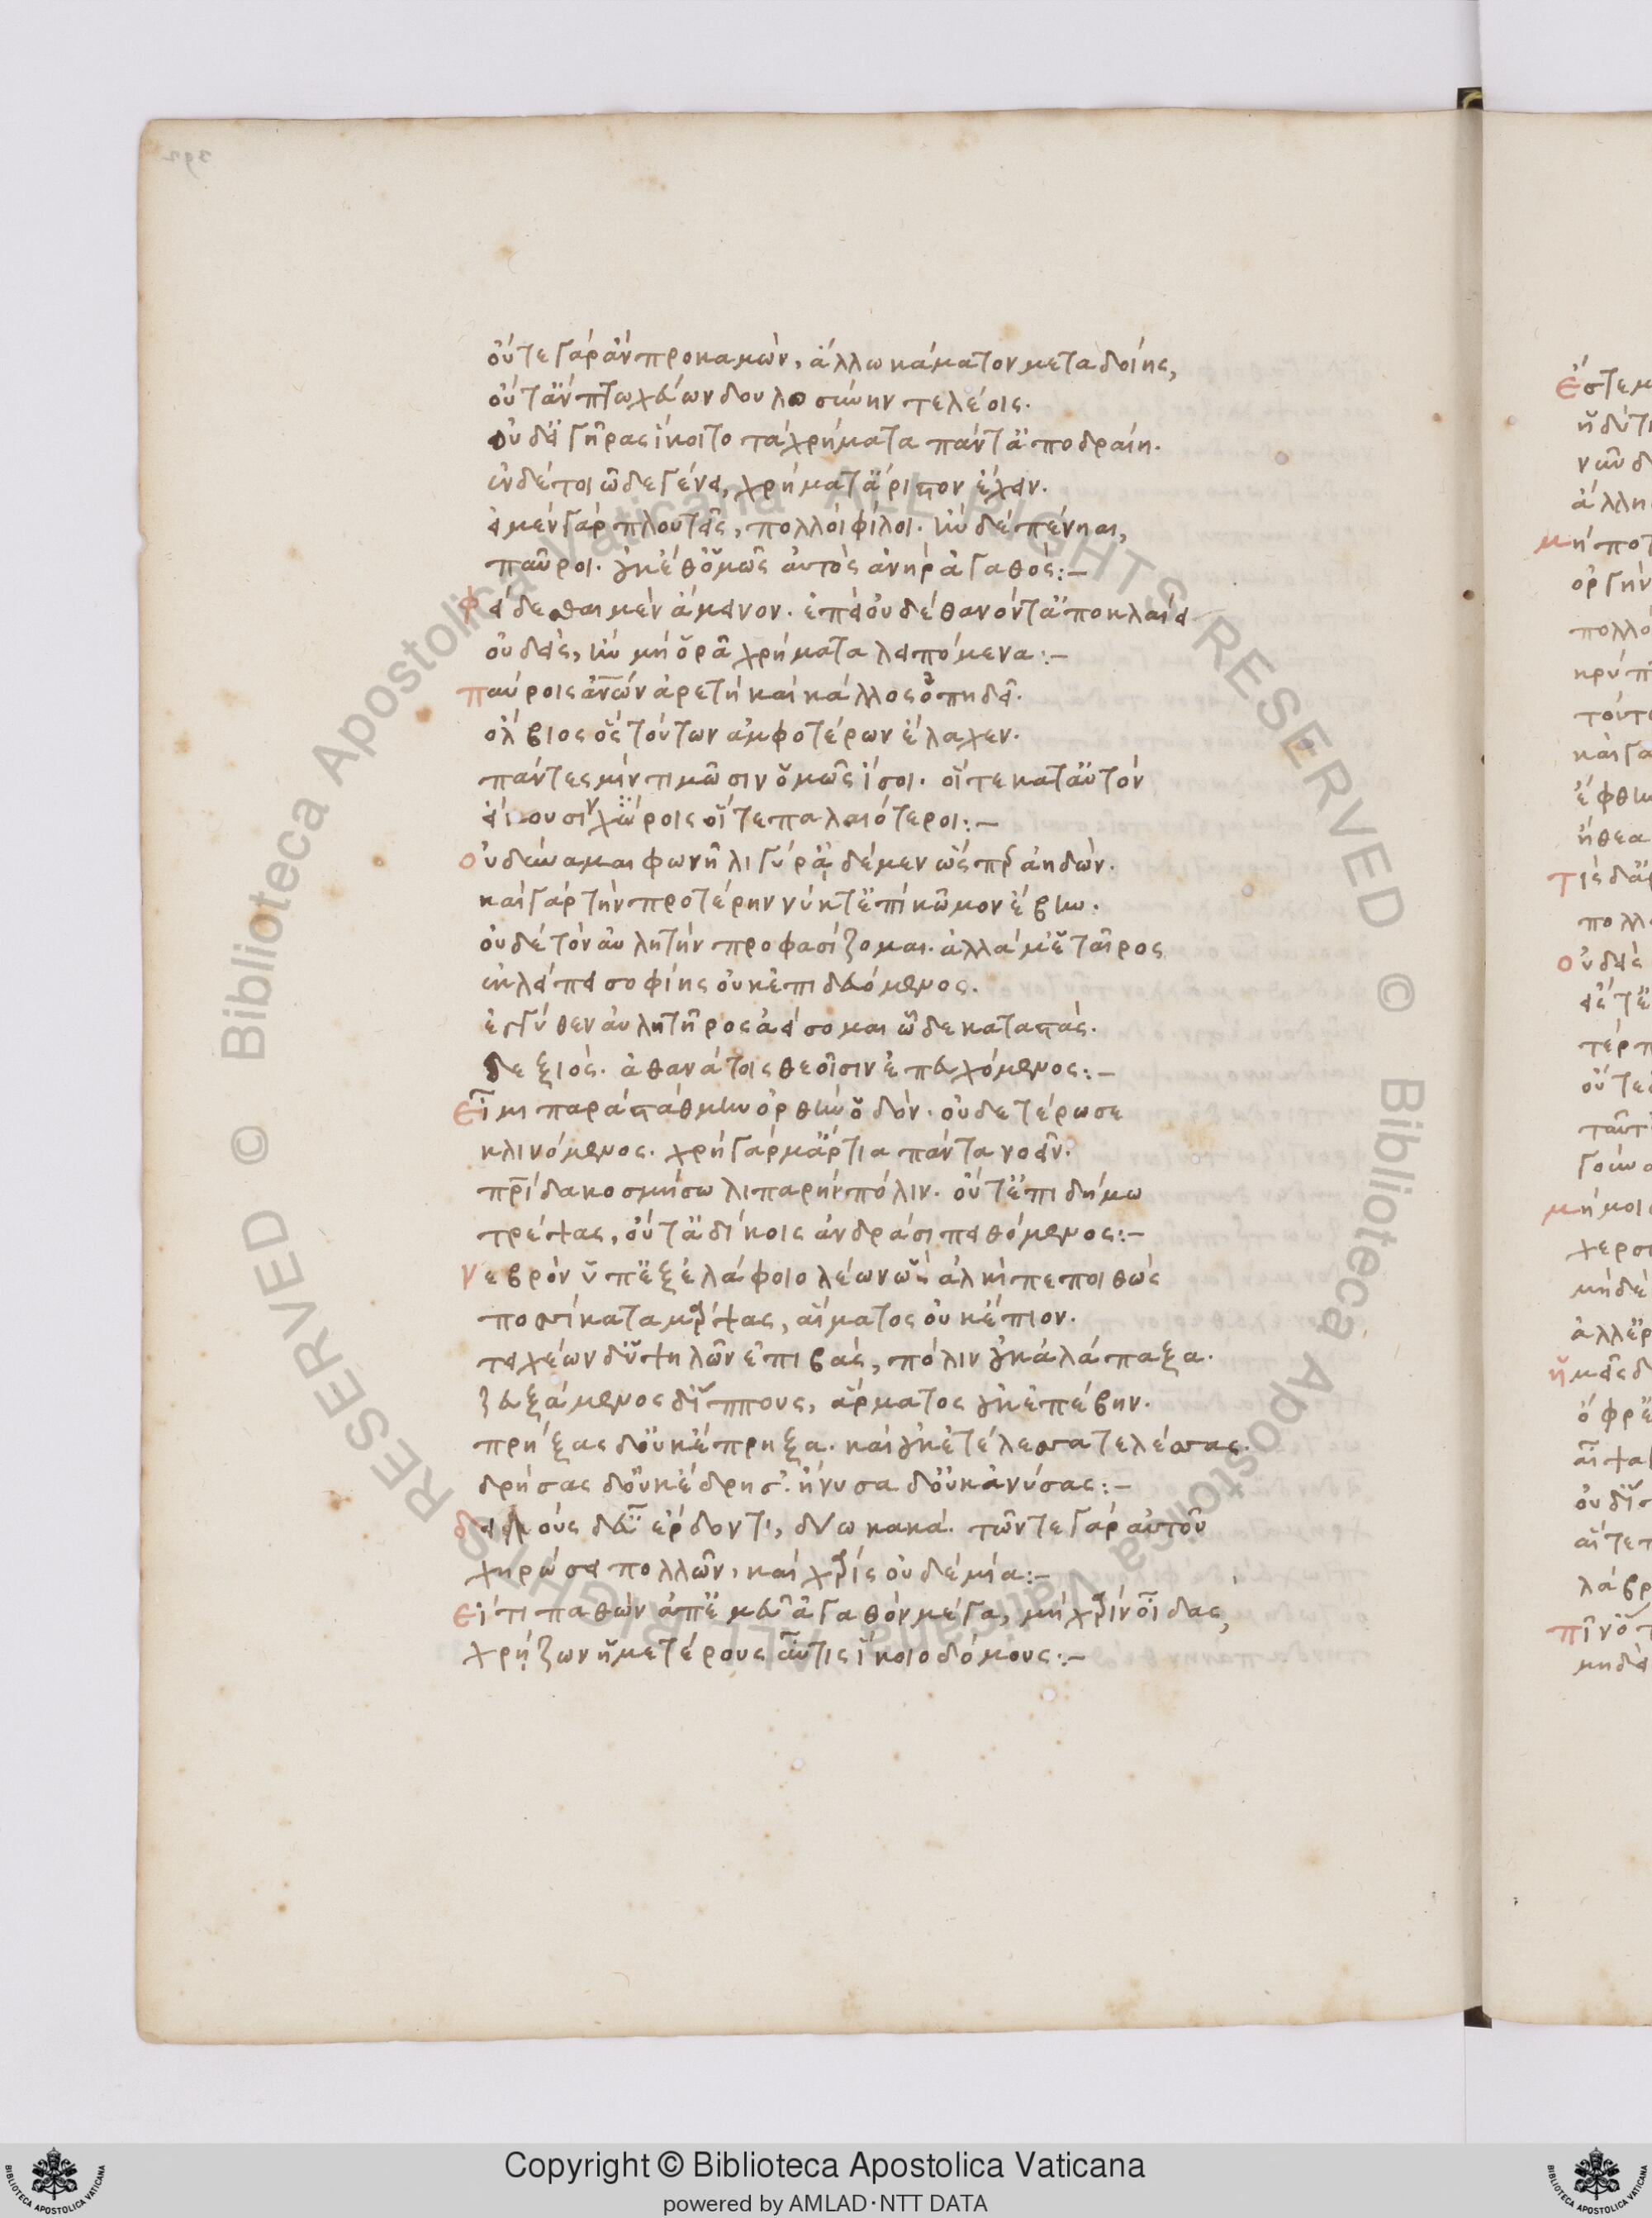 οὔτε γὰρ ἂν προκαμὼν, ἄλλω κάματον μεταδοίης,
οὔτ ἂν πτωχεύων δουλοσύνην τελέοις.
οὐδ εἰ γῆρας ἵκοιτο τὰ χρήματα πάντ ἀποδραίη.
ἐν δέ τοι ὧδε γένει, χρήματ ἄριστον ἔχειν.
εἰ μὲν γὰρ πλουτεῖς, πολλοὶ φίλοι. ἢν δὲ πένηαι,
παῦροι. οὐκ ἔθ ὁμῶς αὐτὸς ἀνὴρ ἀγαθός:—
φείδεσθαι μὲν ἄμεινον. ἐπεὶ οὐδὲ θανόντ ἀποκλαίει
οὐδεὶς, ἢν μὴ ὁρᾶ χρήματα λειπόμενα:—
παύροις ἀνων ἀρετὴ καὶ κάλλος ὀπηδεῖ.
ὄλβιος ὃς τούτων ἀμφοτέρων ἔλαχεν.
πάντες μιν τιμῶσιν ὁμῶς ἴσοι. οἵ τε κατ αὐτὸν
εἴκουσιν χώροις οἵ τε παλαιότεροι:—
οὐ δύναμαι φωνῆ λιγύρ ἀδέμεν ὥσπερ ἀηδών.
καὶ γὰρ τὴν προτέρην νύκτ ἐπὶ κῶμον ἔβην.
οὐδὲ τὸν αὐλητὴν προφασίζομαι. ἀλλά μ ἑταῖρος
ἐκλείπει σοφίης οὐκ ἐπιδευόμενος.
ἐγγύθεν αὐλητῆρος ἀείσομαι ὧδε καταστὰς.
δεξιὸς. ἀθανάτοις θεοῖσιν ἐπευχόμενος:—
εἶμι παρὰ στάθμην ὀρθὴν ὁδόν. οὐδετέρωσε
κλινόμενος. χρὴ γάρ μ ἄρτια πάντα νοεῖν.
πρίδα κοσμήσω λιπαρὴν πόλιν. οὔτ ἐπὶ δήμω
τρέψας, οὔτ ἀδίκοις ἀνδράσι πειθόμενος:—
νεβρὸν ὑπὲξ ἐλάφοιο λέων ὣς ἀλκὶ πεποιθὼς
ποσσὶ καταμάρψας, αἵματος οὐκ ἔπιον.
τειχέων δ ὑψηλῶν ἐπιβὰς, πόλιν οὐκ ἀλάπαξα.
ζευξάμενος δ ἵππους, ἅρματος οὐκ ἐπέβην.
πρήξας δ οὐκ ἔπρηξα. καὶ οὐκ ἐτέλεσσα τελέσσας.
δρήσας δ οὐκ ἔδρησ. ἤνυσα δ οὐκ ἀνύσας:—
δειλοὺς δ εὖ ἔρδοντι, δύω κακά. τῶν τε γὰρ αὐτοῦ
χηρώσει πολλῶν, καὶ χάρις οὐδεμία:—
εἴ τι παθὼν ἀπ ἐμεῦ ἀγαθὸν μέγα, μὴ χάριν οἶδας,
χρῄζων ἡμετέρους αὖτις ἵκοιο δόμους:—
Copyright © Biblioteca Apostolica Vaticana
powered by AMLAD·NTT DATA